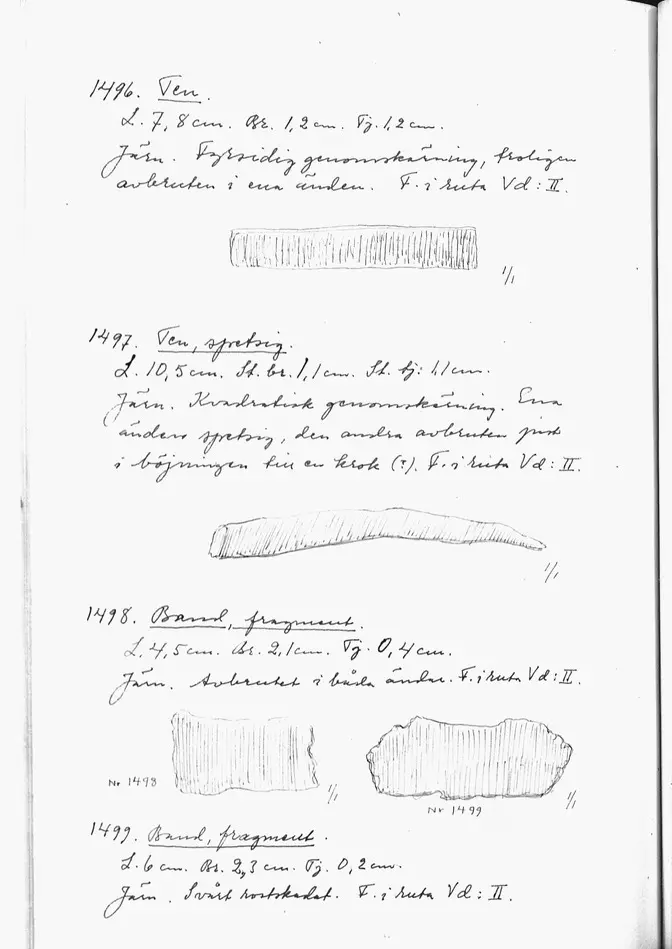 1496. Ten.
L. 7,8 cm. Br. 1,2 cm. Tj. 1,2 cm.
Järn. Fyrsidig genomskärning, troligen
avbruten i ena änden. F. i ruta Vd: II.
1/1
1497. Ten, spetsig.
L. 10,5 cm. St. br. 1,1 cm. St. tj: 1,1 cm.
Järn. Kvadratisk genomskärning. Ena
änden spetsig, den andra avbruten just
i böjningen till en krok (?). F. i ruta Vd: II.
1/1
1498. Band, fragment.
L. 4,5 cm. Br. 2,1 cm. Tj. 0,4 cm.
Järn. Avbrutet i båda ändar. F. i ruta Vd: II.
Nr 1498
1/1
Nr 1499
1/1
1499. Band, fragment.
L. 6 cm. Br. 2,3 cm. Tj. 0,2 cm.
Järn. Svårt rostskadat. F. i ruta Vd: II.